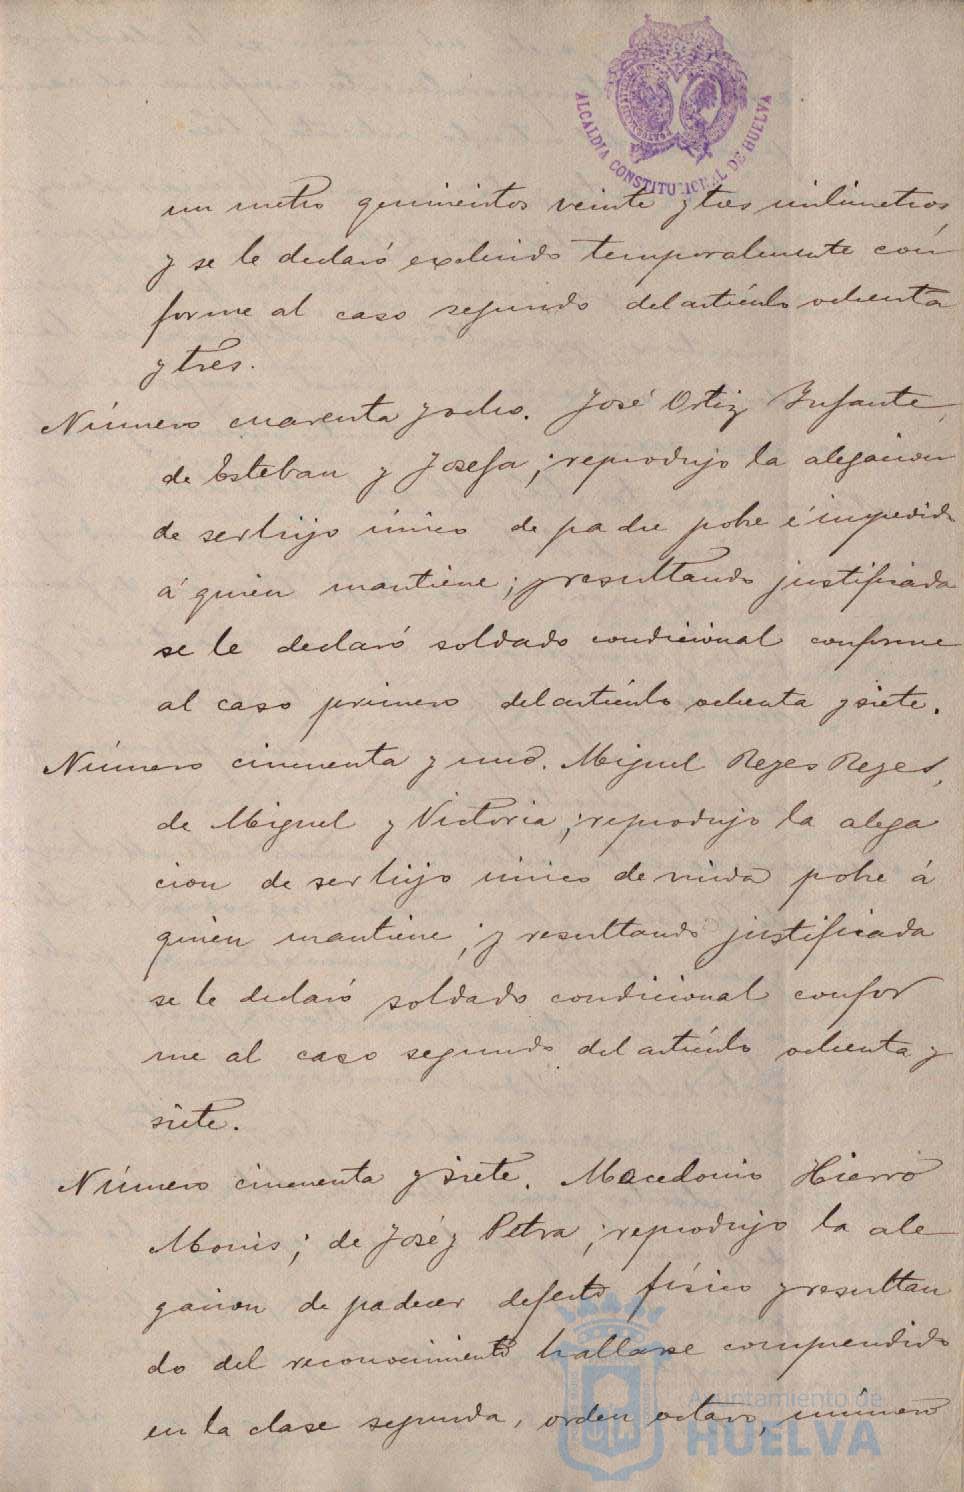 ALCALDIA CONSTITUCIONAL DE HUELVA
un metro quinientos veinte y tres milimetros
y se le declaró excluido temporalmente con
forme al caso segundo del artículo ochenta
y tres.
Número cuarenta y ocho. José Ortiz Infante,
de Esteban y Josefa; reprodujo la alegacion
de ser hijo único de padre pobre é impedido
á quien mantiene; y resultando justificada
se le declaró soldado condicional conforme
al caso primero del artículo ochenta y siete.
Número cincuenta y uno. Miguel Reyes Reyes,
de Miguel y Victoria; reprodujo la alega
cion de ser hijo único de viuda pobre á
quien mantiene; y resultando justificada
se le declaró soldado condicional confor
me al caso segundo del artículo ochenta y
siete.
Número cincuenta y siete. Macedonio Hierro
Monis; de José y Petra; reprodujo la ale
gacion de padecer defecto físico y resultan
do del reconocimiento hallarse comprendido
en la clase segunda, orden octavo, número
Ayuntamiento de
HUELVA